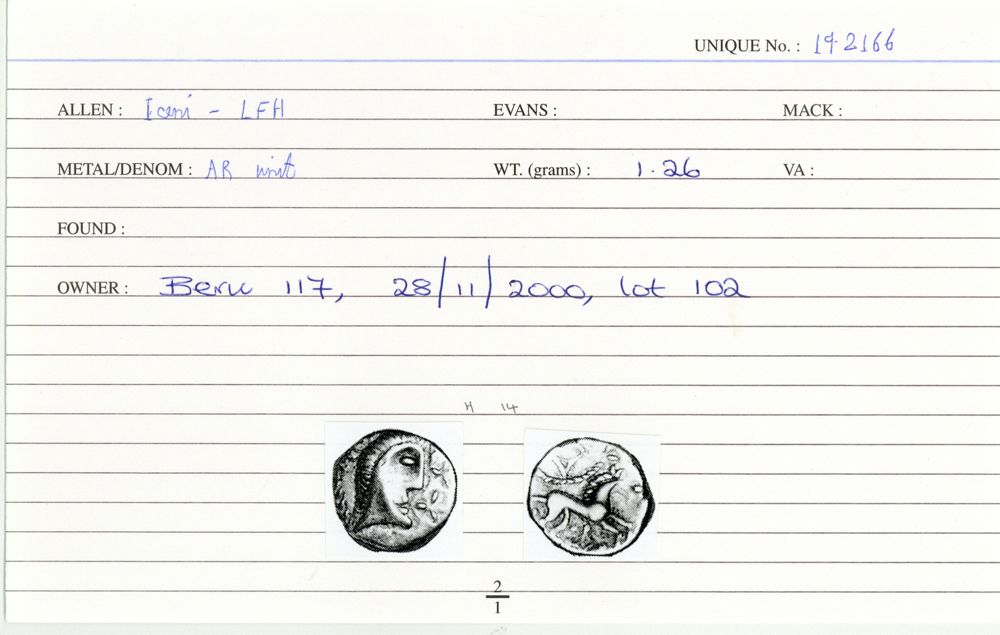 UNIQUE No. : 19-2166
ALLEN : Iceni - LFH EVANS : MACK :
METAL/DENOM : AR unit WT. (grams) : 1.26 VA :
FOUND :
OWNER : Berk 117, 28/11/2000, lot 102
H 14
2
1